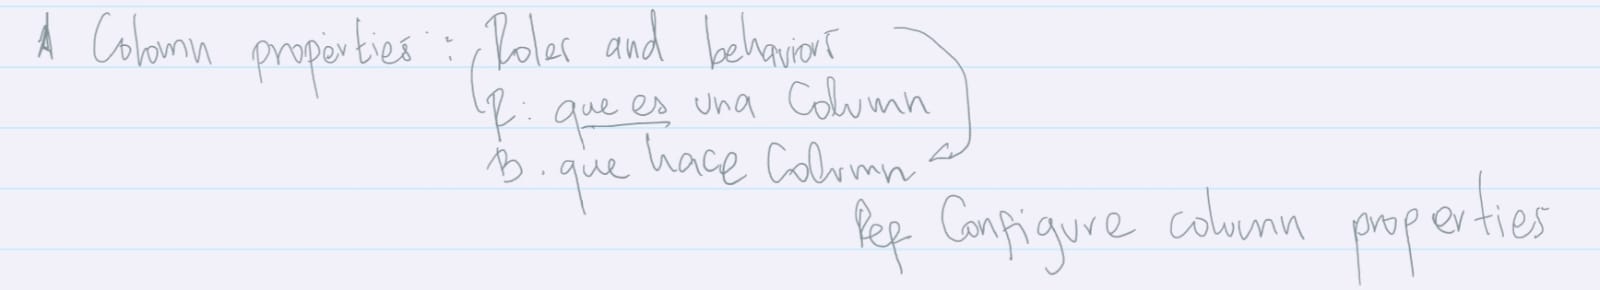 A Column properties: Roles and behaviors
R: que es una Column
B. que hace Column
Ref Configure column properties